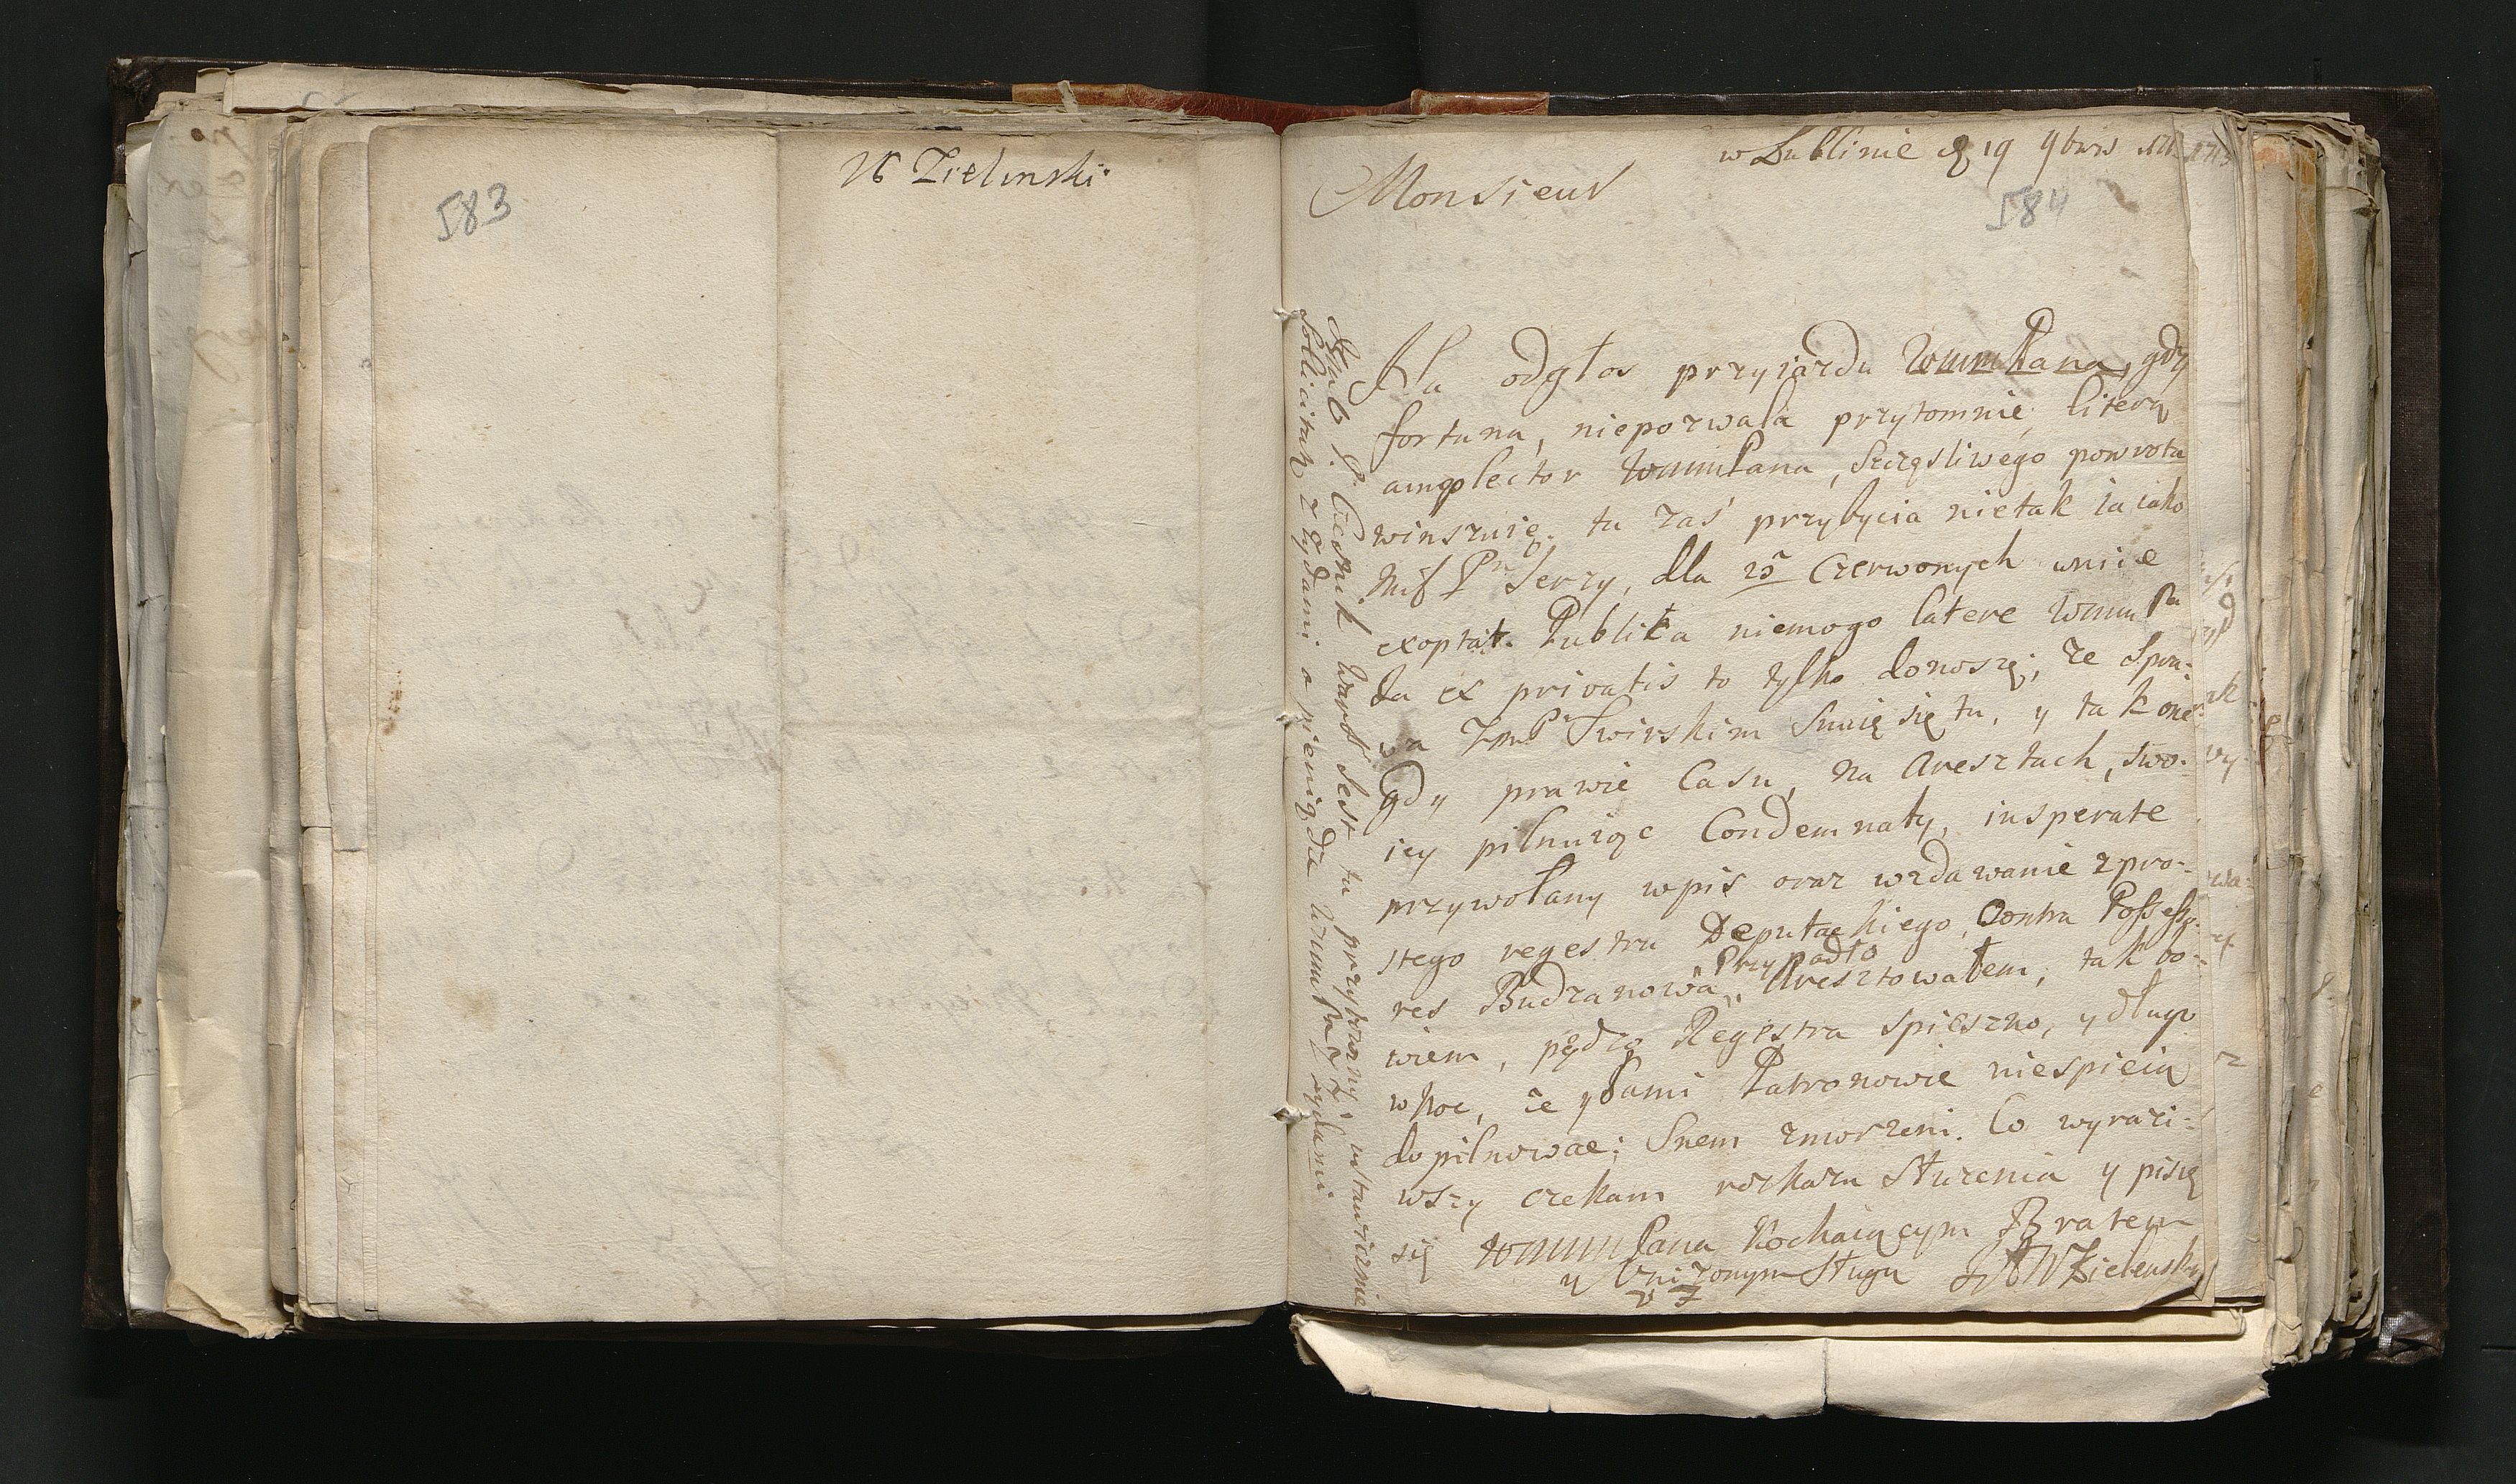 583
W Zielinski
w Lublinie 19 9bris
584
Monsieur
Na odgłos przyiazdu WMMPana, gdy
fortuna, niepozwala przytomnie, literą
amplector WMMPana, szczęsliwego powrotu
winszuię. tu zaś przybycia nietak ia iako
Pn Jerzy, dla 25 Czerwonych unice
exoptat. Publika niemogo latere WMMPa
Ja ex privatis to tylko donoszę; że Spra-
wa ZmP Swirskim Snuię się tu, y tak one-
gdy prawie Casu, na Aresztach, swo-
iey pilnuiąc Condemnaty, insperate
przywołany wpis oraz wzdawanie zpro-
stego regestru Deputackiego, Contra Possesso-
res Budzanowa, Przypadło Aresztowałem, tak bo-
wiem, pędzo Regestra spieszno, y długo
w noc, że y sami Patronowie niespieią
dopilnowac; Snem zmorzeni. Co wyrazi-
wszy czekam roskazu słuzenia y piszę
się WMMPana Kochaiącym Bratem
y Unizonym Sługą Zielenski
P. Czesnik Jest tu przytomny, ustawicznie
Sollicituię z zydami o pieniądze WMMPa z zydami